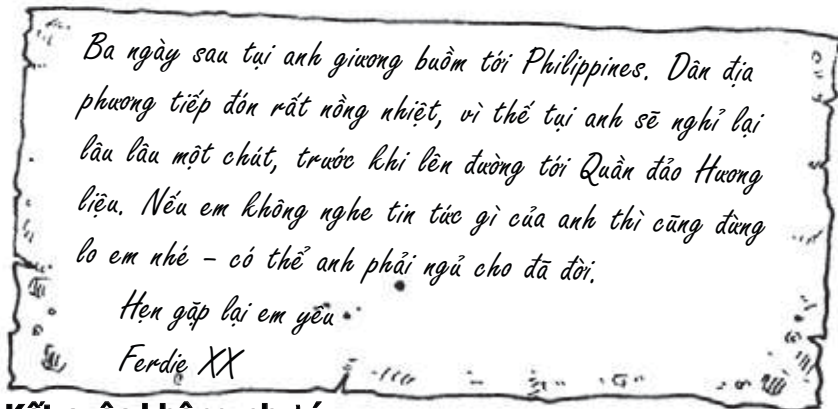 Ba ngày sau tụi anh giương buồm tới Philippines. Dân địa
phương tiếp đón rất nồng nhiệt, vì thế tụi anh sẽ nghỉ lại
lâu lâu một chút, trước khi lên đường tới Quần đảo Hương
liệu. Nếu em không nghe tin tức gì của anh thì cũng đừng
lo em nhé – có thể anh phải ngủ cho đã đời.
Hẹn gặp lại em yêu
Ferdie XX